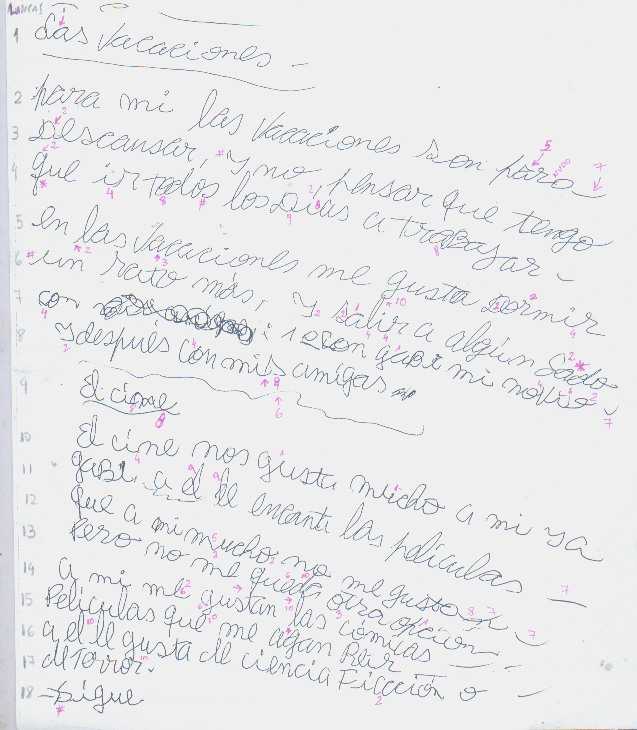 Lineas
1 Las vacaciones -
2 para mi las vacaciones son para
3 Descansar, y no pensar que tengo
4 que ir todos los Dias a trabajar -
5 en las vacaciones me gusta Dormir
6 un rato más, y salir a algún lado
7 con : 1 con gabi mi novio -
8 y después con mis amigas
9 El cine
10 El cine nos gusta mucho a mi y a
11 gabi, a el le encanta las peliculas
12 que a mi mucho no me gusta -
13 Pero no me queda otra opción -
14 a mi me gustan las cómicas -
15 Peliculas que me agan Reir -
16 a el le gusta de ciencia Ficción o -
17 de Terror.
18 - Sigue